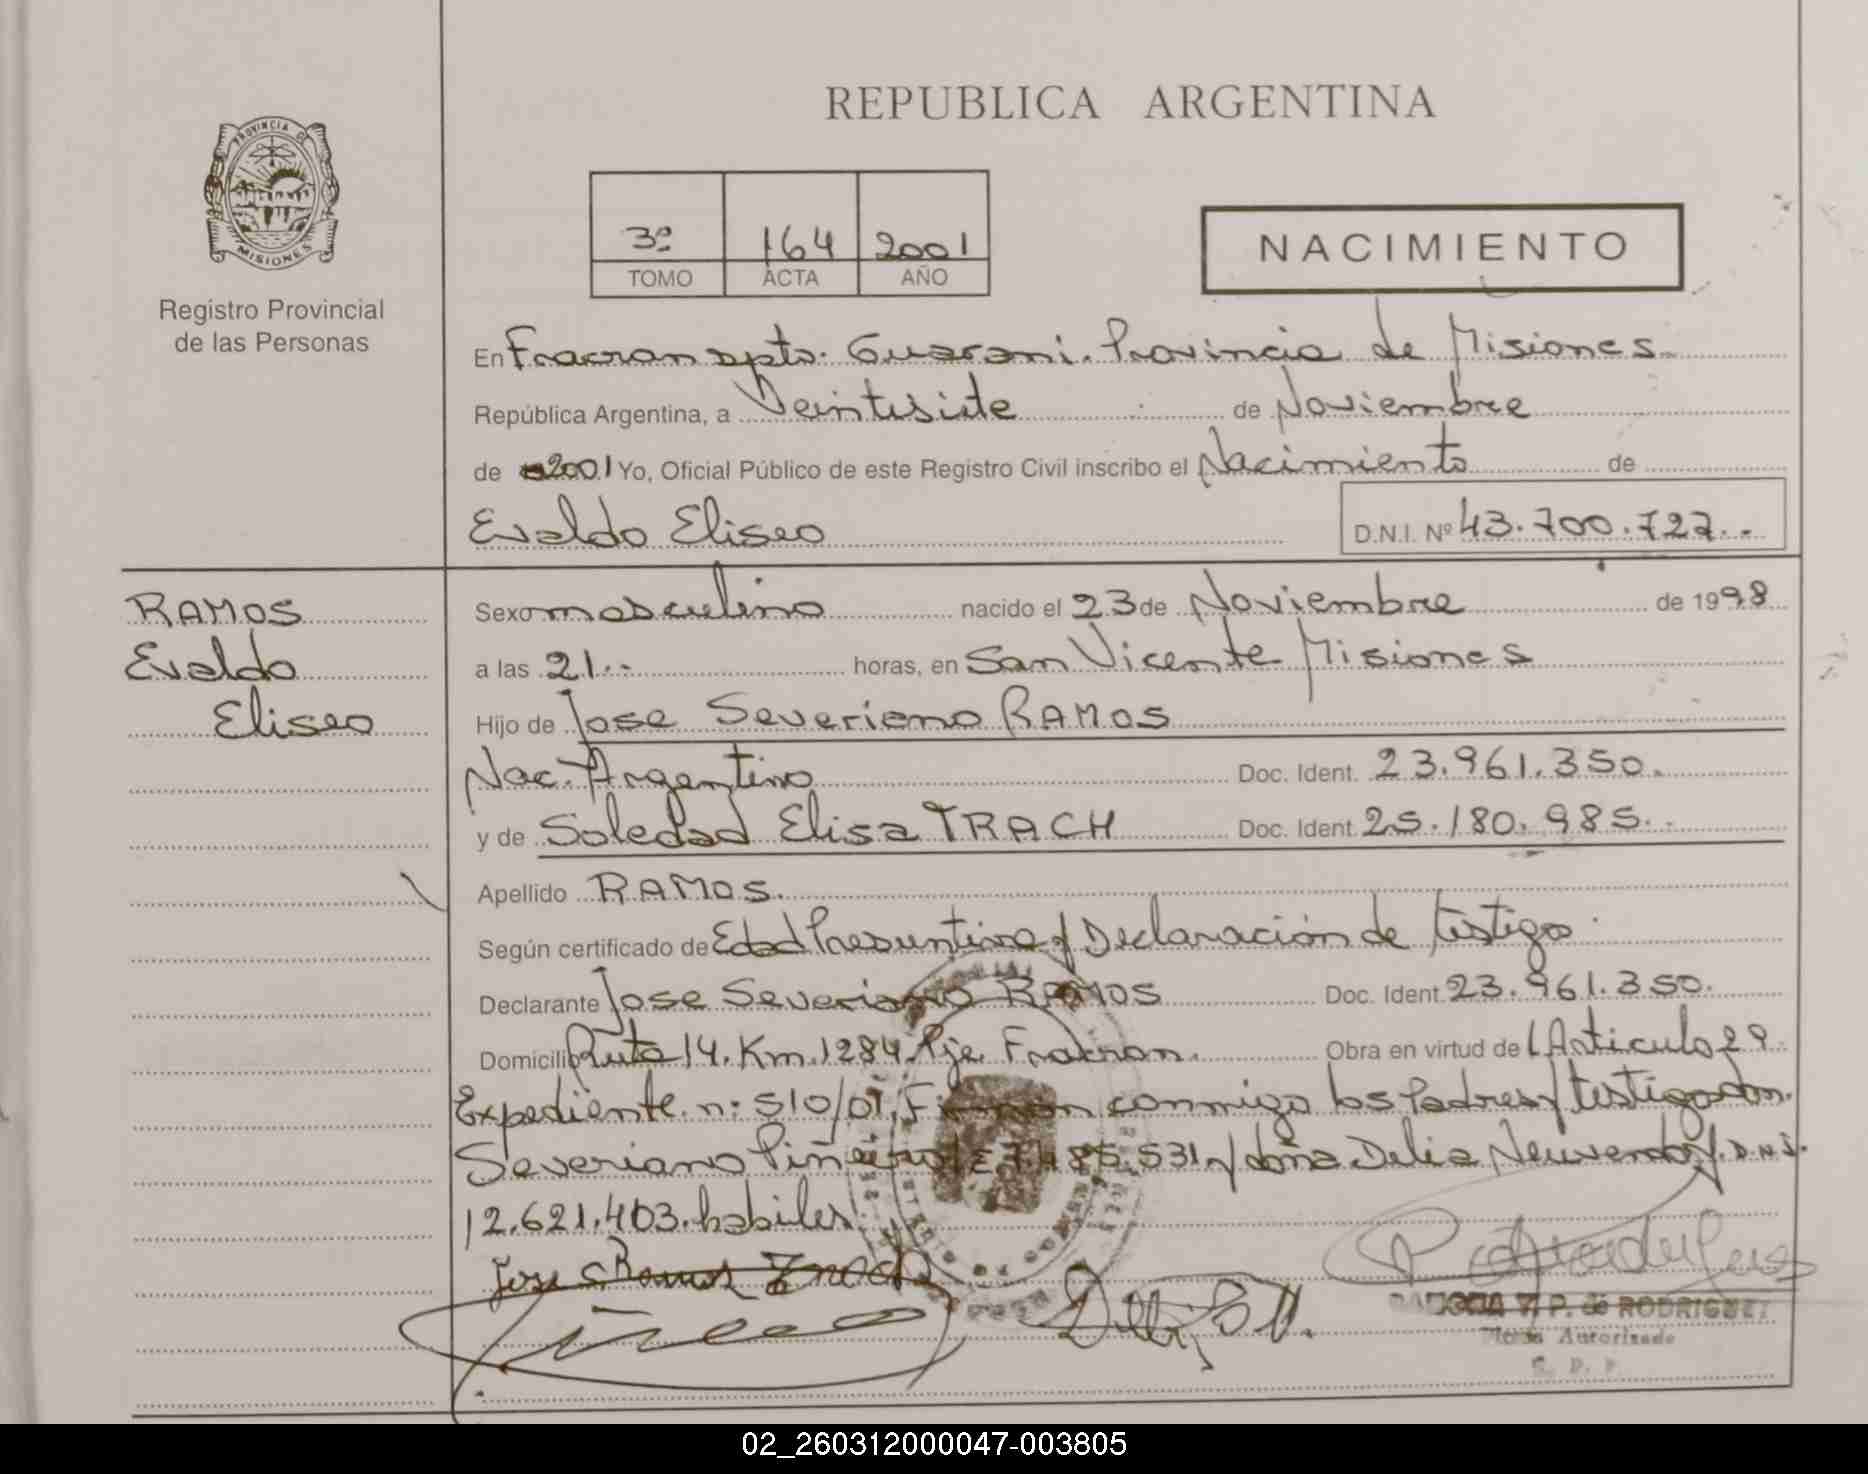 PROVINCIA D
MISIONES
Registro Provincial
de las Personas
REPUBLICA ARGENTINA
3º 164 2001
TOMO ACTA AÑO
NACIMIENTO
En Fracran Dpto. Guarani. Provincia de Misiones
República Argentina, a Veintisiete de Noviembre
de 2001 Yo, Oficial Público de este Registro Civil inscribo el Nacimiento de
Evaldo Eliseo D.N.I. Nº 43.700.727..
RAMOS
Evaldo
Eliseo
Sexo masculino nacido el 23 de Noviembre de 1998
a las 21.. horas, en San Vicente Misiones
Hijo de Jose Severiano RAMOS
Nac. Argentino Doc. Ident. 23.961.350.
y de Soledad Elisa TRACH Doc. Ident. 25.180.985..
Apellido RAMOS.
Según certificado de Edad Presuntiva y Declaración de testigo
Declarante Jose Severiano RAMOS Doc. Ident. 23.961.350.
Domicilio Ruta 14. Km. 1284. Pje. Fracran. Obra en virtud de l Articulo 29
Expediente. n: 510/01, Firman conmigo los Padres y testigos don.
Severiano Piñeiro 7.485.531 y doña Delia D.N.I.
12.621.403. habiles.
Jose S Ramos Trach
P. de RODRIGUEZ
Autorizado
02_260312000047-003805